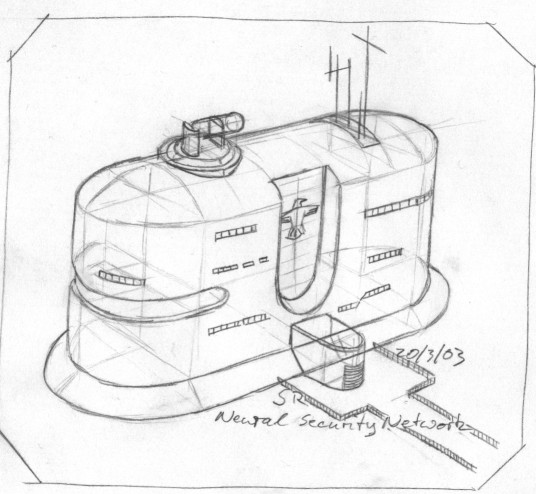 20/3/03
SR
Neural Security Network